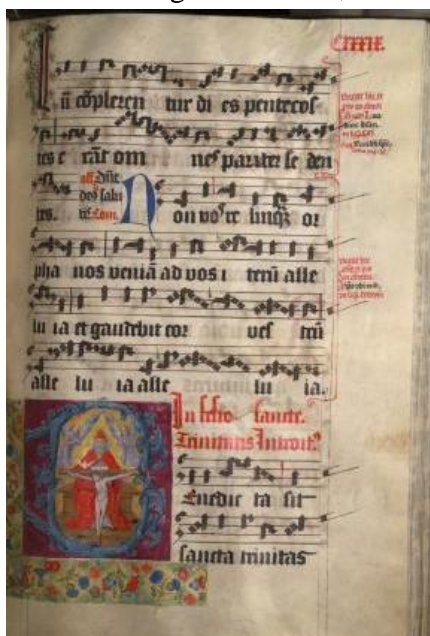 ū cōpleren tur di es pentecos
tes e rāt om nes pariter se den
tes. off. Dñe
deus salu
tē. Com. Non vos re linqā or
pha nos veniā ad vos i terū alle
lu ia et gaudebit cor ves trū
alle lu ia alle lu ia.
In festo sancte.
Trinitatis Introit.
Benedic ta sit
sancta trinitas